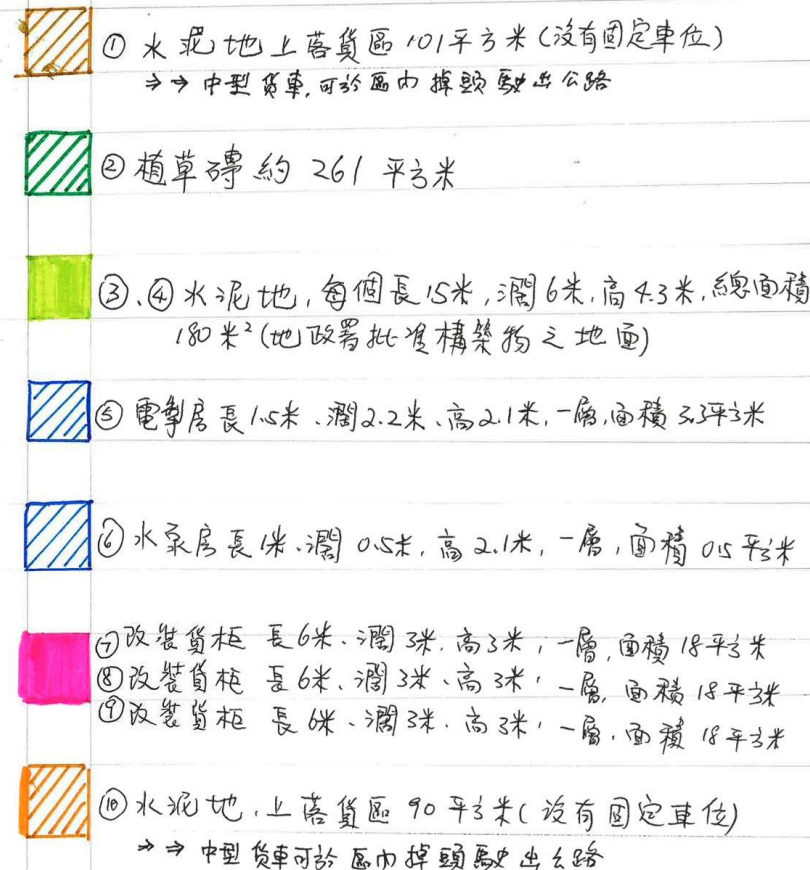 ① 水泥地上落貨區 101平方米(沒有固定車位)
→→ 中型貨車,可於區內掉頭駛出公路
② 植草磚約 261 平方米
③、④水泥地,每個長15米,濶6米,高4.3米,總面積
180米²(地政署批准構築物之地面)
⑤ 電掣房長1.5米、濶2.2米、高2.1米,一層,面積3.3平方米
⑥ 水泵房長1米、濶0.5米,高2.1米,一層,面積0.5平方米
⑦改裝貨柜 長6米、濶3米、高3米,一層,面積18平方米
⑧改裝貨柜 長6米、濶3米、高3米,一層,面積18平方米
⑨改裝貨柜 長6米、濶3米、高3米,一層,面積18平方米
⑩水泥地,上落貨區90平方米(沒有固定車位)
→→ 中型貨車可於區內掉頭駛出公路